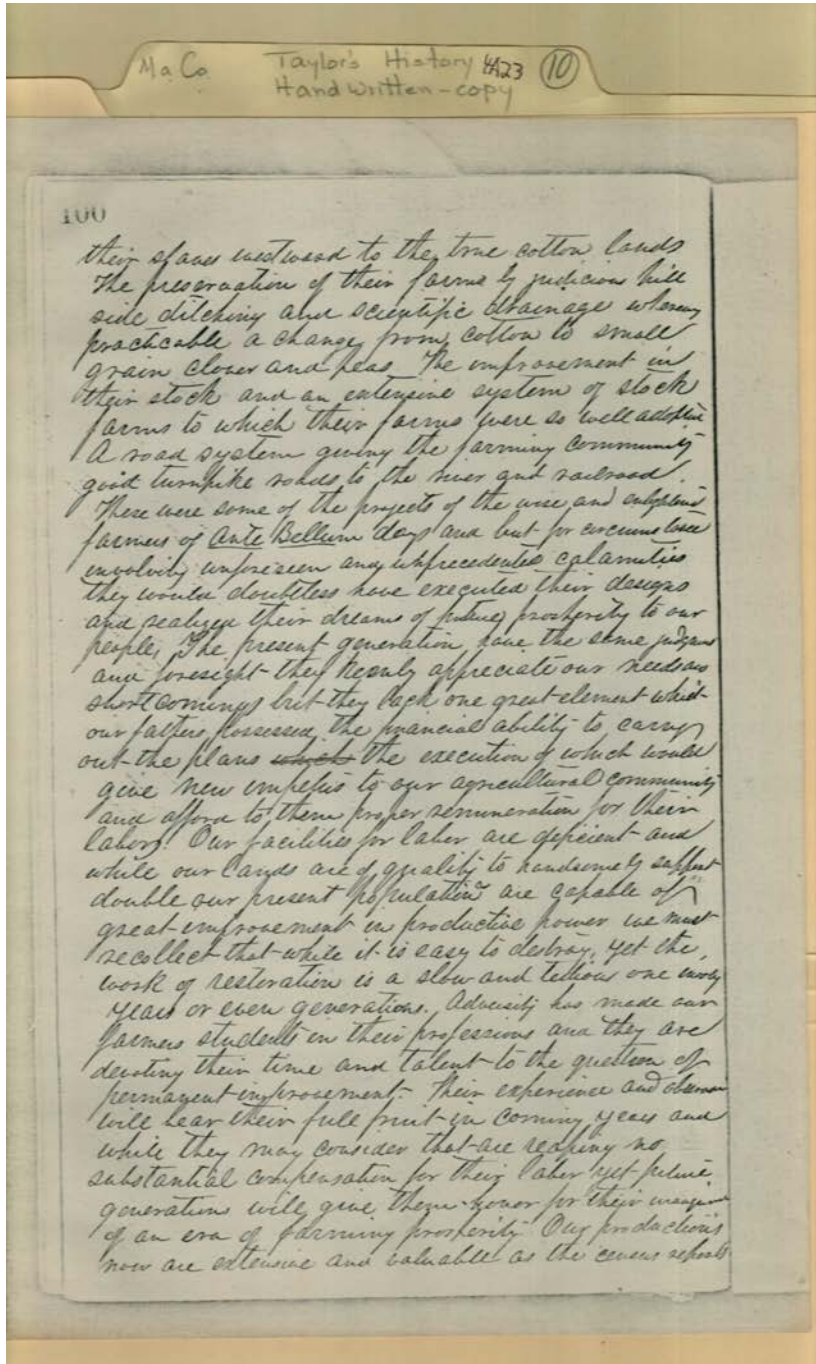 Ma Co. Taylor's History 4A23 10
Handwritten - copy
100
their slaves westward to the true cotton lands
The preservation of their farms by judicious hill
side ditching and scientific drainage whenever
practicable a change from cotton to small
grain clover and peas. The improvement in
their stock and an extensive system of stock
farms to which their farms were so well adapted
A road system giving the farming community
good turnpike roads to the river and railroad.
These were some of the projects of the wise and enlightened
farmers of Ante Bellum days and but for circumstances
involving unforeseen and unprecedented calamities
they would doubtless have executed their designs
and realized their dreams of future prosperity to our
people, The present generation have the same judgment
and foresight they keenly appreciate our needs and
shortcomings but they lack one great element which
our fathers possessed, the financial ability to carry
out the plans which the execution of which would
give new impetus to our agricultural community
and afford to them proper remuneration for their
labors. Our facilities for labor are deficient and
while our lands are of quality to handsomely support
double our present population are capable of
great improvement in productive power we must
recollect that while it is easy to destroy, yet the,
work of restoration is a slow and tedious one
years or even generations. Adversity has made our
farmers students in their professions and they are
devoting their time and talent to the question of
permanent improvement. Their experience and
will bear their full fruit in coming years and
while they may consider that are reaping no
substantial compensation for their labor yet future
generations will give them honor for their
of an era of farming prosperity. Our productions
now are extensive and valuable as the census reports